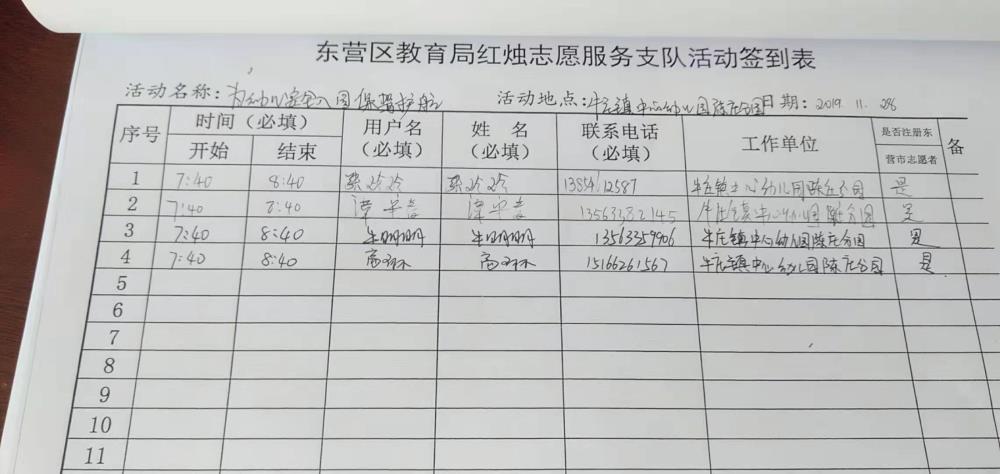 东营区教育局红烛志愿服务支队活动签到表
活动名称:为幼儿安全入园保驾护航 活动地点:牛庄镇中心幼儿园陈庄分园 日期:2019.11.28
序号 时间(必填) 用户名(必填) 姓名(必填) 联系电话(必填) 工作单位 是否注册东营市志愿者 备
开始 结束
1 7:40 8:40 玲玲 玲玲 13854612587 牛庄镇中心幼儿园陈庄分园 是
2 7:40 8:40 13563382145 是
3 7:40 8:40 牛明明 牛明明 13563359906 牛庄镇中心幼儿园陈庄分园 是
4 7:40 8:40 高环 高环 15166261567 牛庄镇中心幼儿园陈庄分园 是
5
6
7
8
9
10
11